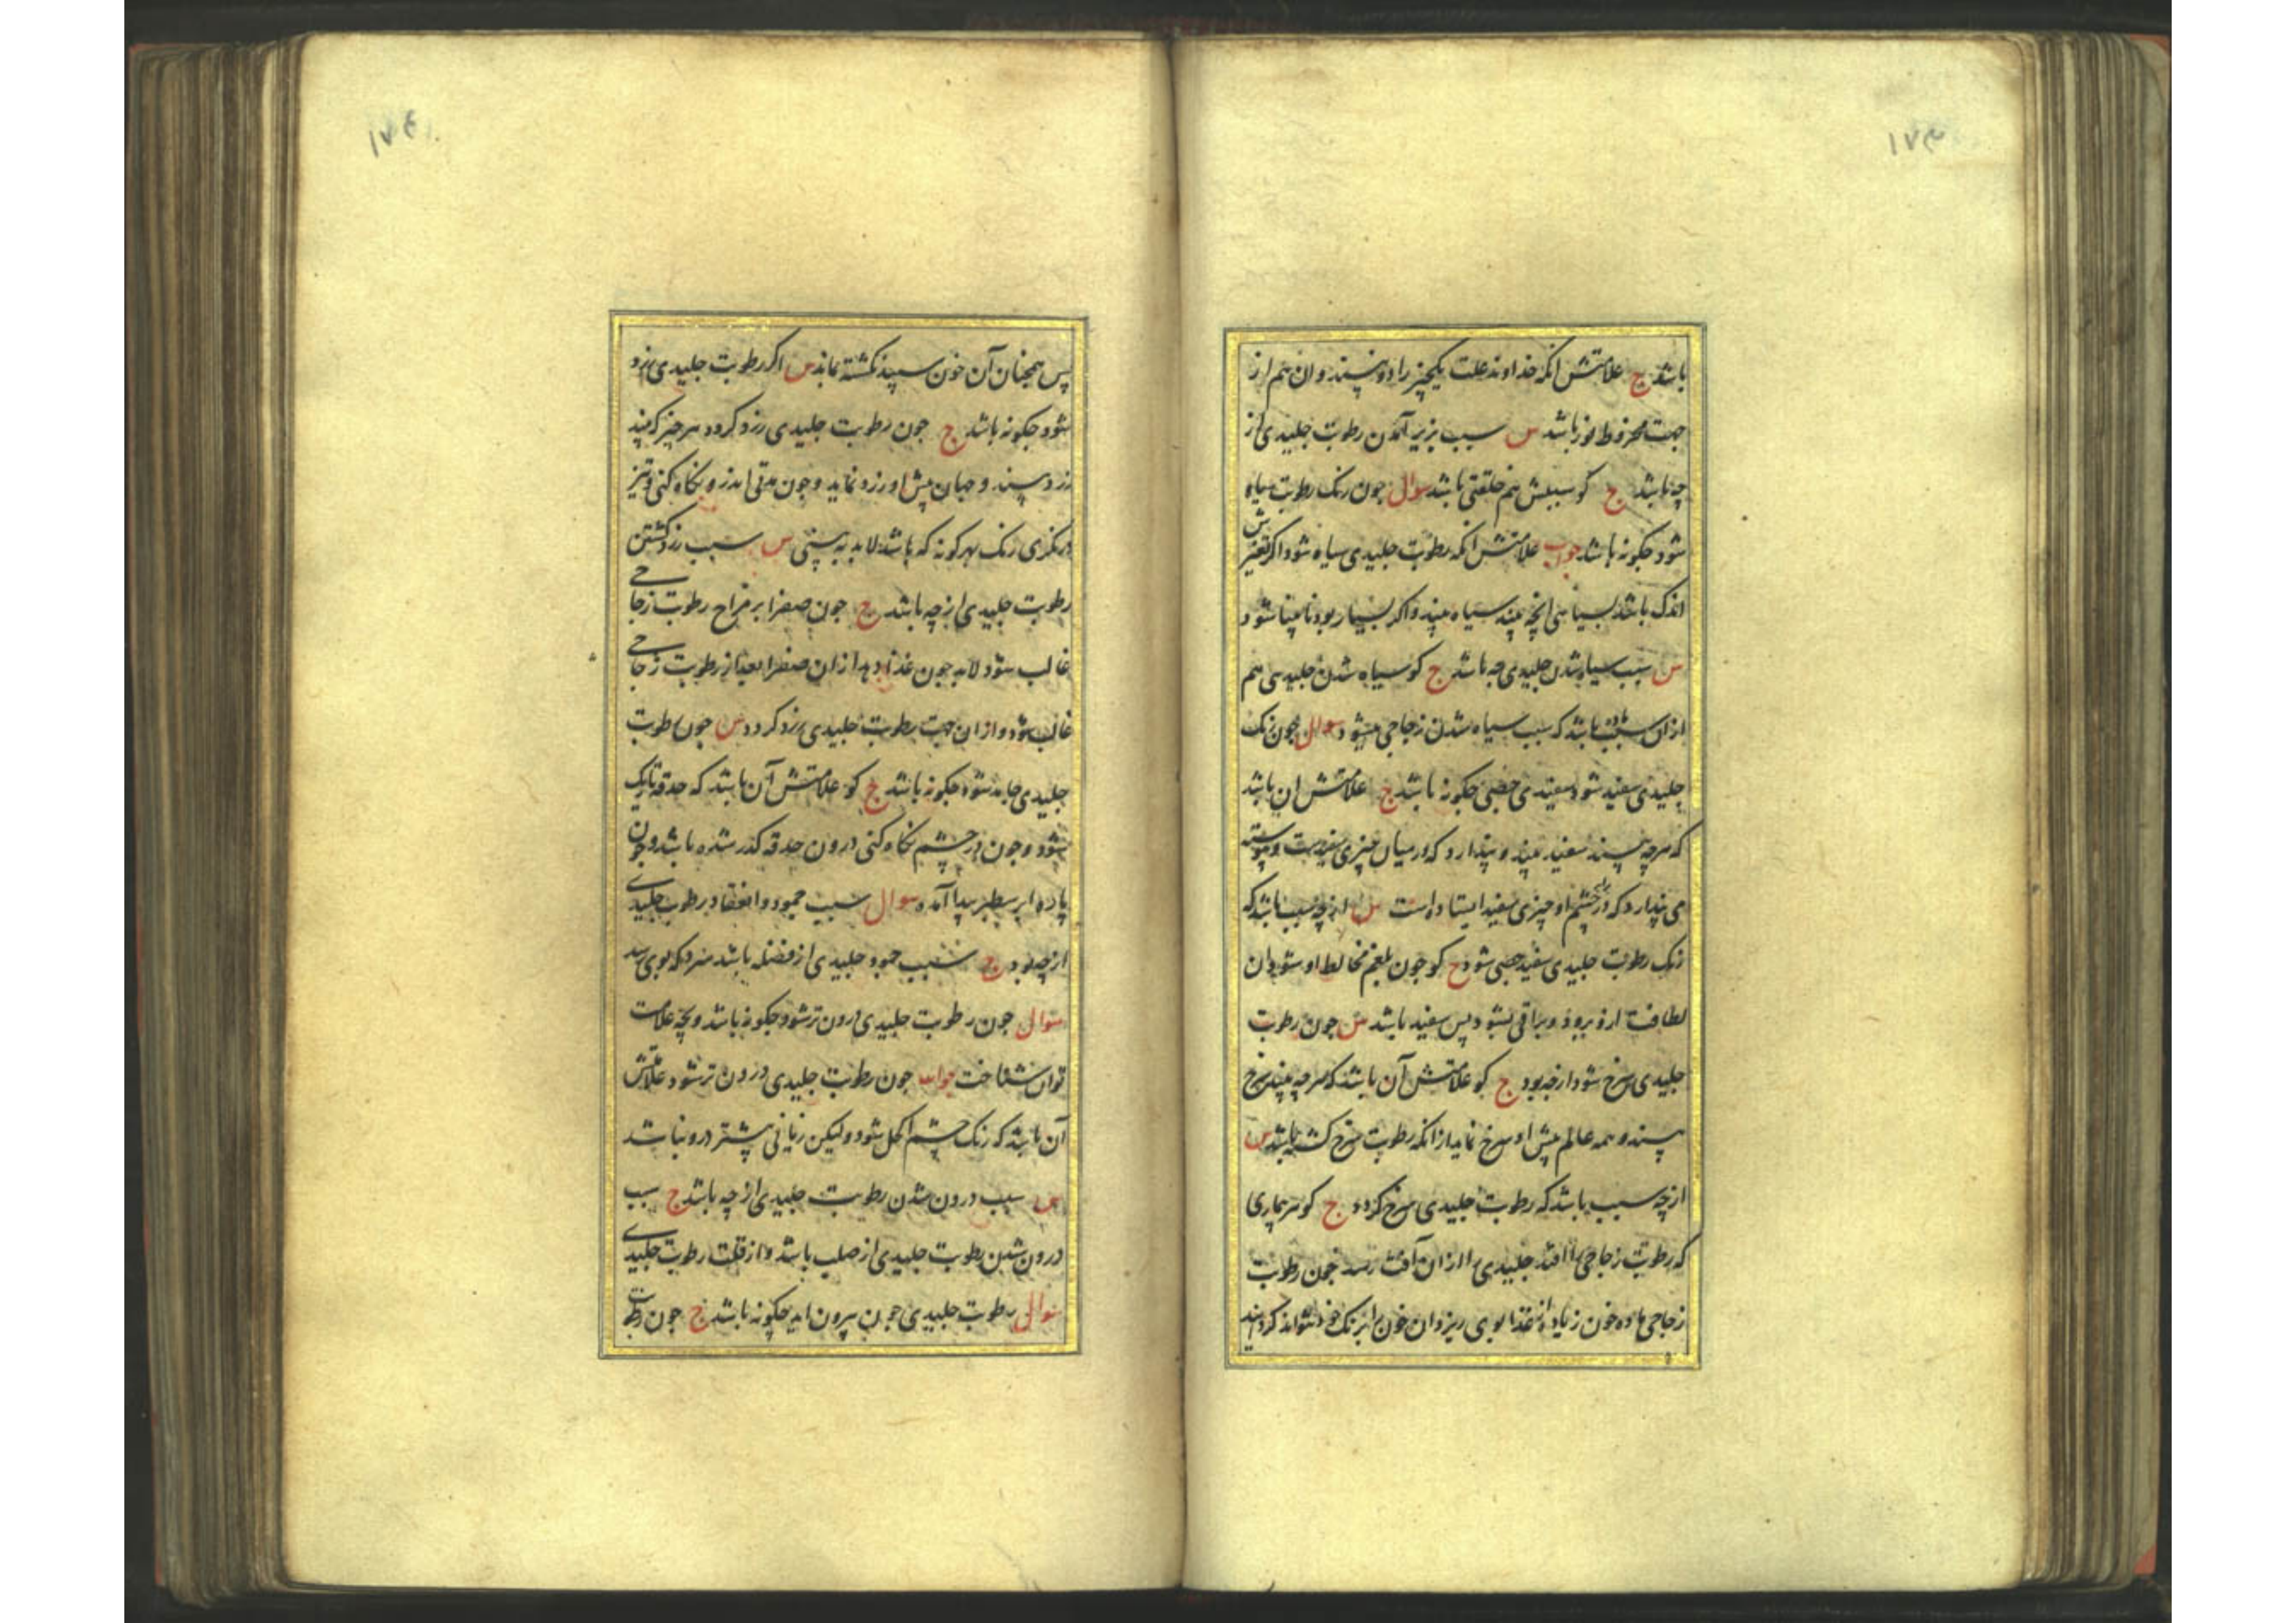 ۱۷۳
باشد ج علامتش آنکه خداوند علت یکچیز را دو بیند و آن هم از
جهت مخروط نور باشد س سبب بزیر آمدن رطوبت جلیدی از
چه باشد ج کو سببش هم خلقتی باشد سوال جون رنک رطوبت سیاه
شود جکونه باشد جواب علامتش آنکه رطوبت جلیدی سیاه شود اکر تغیرش
اندک باشد بسیاهی آنچه بیند سیاه بیند و اکر بسیار بود نابینا شود
س سبب سیاه شدن جلیدی چه باشد ج کو سیاه شدن جلیدی هم
از آن باشد که سبب سیاه شدن زجاجی میشود سوال جون رنک
جلیدی سفید شود سفیدی جصی جکونه باشد ج علامتش ان باشد
که هرچه بیند سفید بیند و پندارد که در میان چیزی سفیدست و پیوسته
می پندارد که در چشم او چیزی سفید ایستاده است س از چه سبب باشد که
رنک رطوبت جلیدی سفید جصی شود ج کو جون بلغم مخالط او شود آن
لطافت ازو برود و براقی بشود پس سفید باشد س جون رطوبت
جلیدی سرخ شود از چه بود ج کو علامتش آن باشد که هرچه بیند سرخ
بیند و همه عالم پیش او سرخ نماید از آنکه رطوبت سرخ کشته باشد س
از چه سبب باشد که رطوبت جلیدی سرخ کردد ج کو هر بیماری
که رطوبت زجاجی را افتد جلیدی را از آن آفت رسد جون رطوبت
زجاجی ماده خون زیاده از غذا بوی ریزد آن خون را برنک خود نتواند کردانید
۱۷۴
پس همچنان آن خون سپید نکشته بماند س اکر رطوبت جلیدی زرد
شود جکونه باشد ج جون رطوبت جلیدی زرد کردد هر چیز که بیند
زرد بیند و جهان پیش او زرد نماید و جون بدقی اندرو نکاه کنی و تیز
درنکری رنک بهر کونه که باشد لابد به بینی س سبب زرد کشتن
رطوبت جلیدی از چه باشد ج جون صفرا بر مزاج رطوبت زجاجی
غالب شود لابد جون غذا دهد از آن صفرا بعد از رطوبت زجاجی
غالب شود و از آن جهت رطوبت جلیدی زرد کردد س جون رطوبت
جلیدی جامد شود جکونه باشد ج کو علامتش آن باشد که حدقه تاریک
شود و جون در چشم نکاه کنی درون حدقه کدر شده باشد و جون
پاره ابر سطبر پیدا آمده سوال سبب جمود و انعقاد رطوبت جلیدی
از چه بود ج سبب جمود جلیدی از فضله باشد سرد که بوی رسد
سوال جون رطوبت جلیدی درون تر شود جکونه باشد و بچه علامت
توان شناخت جواب جون رطوبت جلیدی درون تر شود علامتش
آن باشد که رنک چشم اکحل شود و لیکن زیانی بیشتر درو نباشد
س سبب درون شدن رطوبت جلیدی از چه باشد ج سبب
درون شدن رطوبت جلیدی از صلب باشد و از قلت رطوبت جلیدی
سوال رطوبت جلیدی جون بیرون آید جکونه باشد ج جون رطوبت